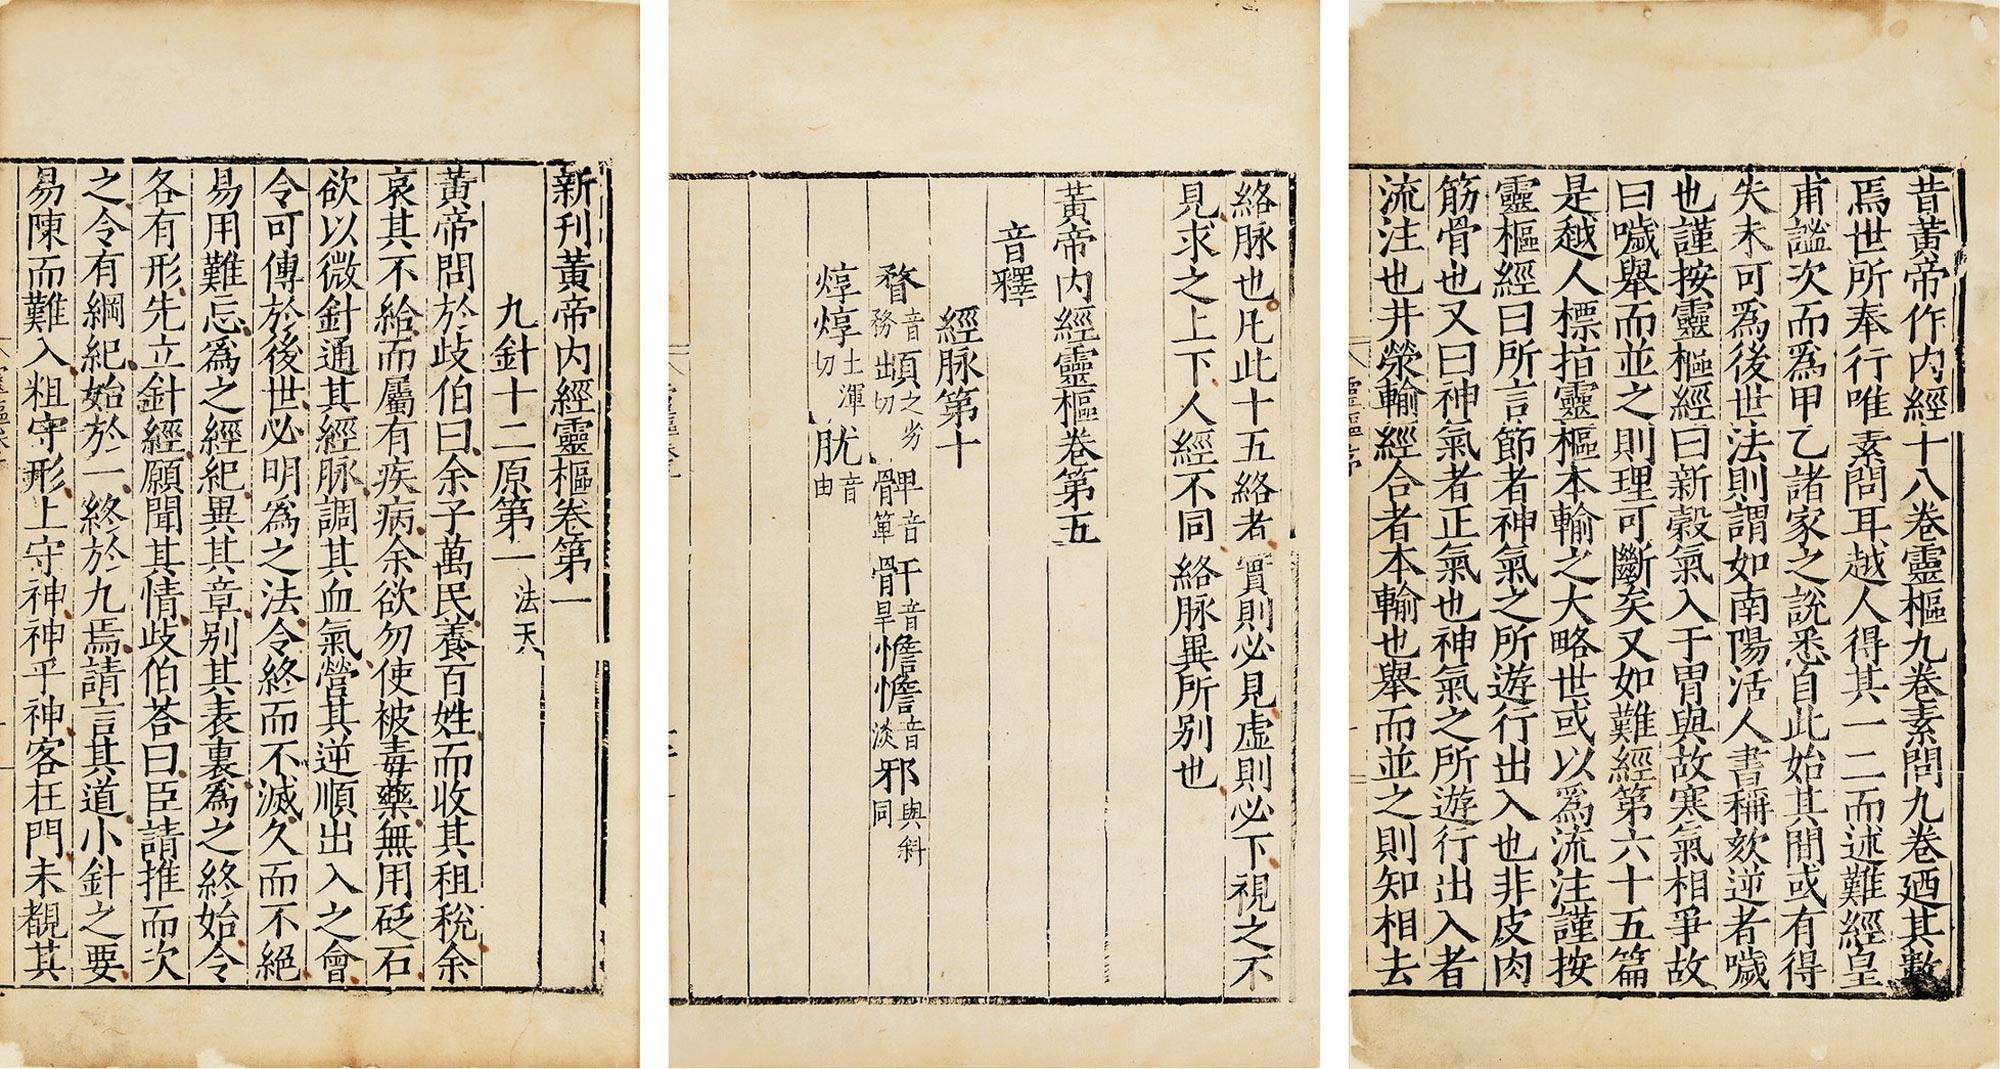 昔黃帝作内經十八卷靈樞九卷素問九卷廼其數
焉世所奉行唯素問耳越人得其一二而述難經皇
甫謐次而爲甲乙諸家之說悉自此始其間或有得
失未可爲後世法則謂如南陽活人書稱欬逆者噦
也謹按靈樞經曰新穀氣入于胃與故寒氣相爭故
曰噦舉而並之則理可斷矣又如難經第六十五篇
是越人標指靈樞本輸之大略世或以爲流注謹按
靈樞經曰所言節者神氣之所遊行出入也非皮肉
筋骨也又曰神氣者正氣也神氣之所遊行出入者
流注也井滎輸經合者本輸也舉而並之則知相去
絡脉也凡此十五絡者實則必見虛則必下視之不
見求之上下人經不同絡脉異所别也
黃帝内經靈樞卷第五
音釋
經脉第十
瞀音務䪼之劣切髀音箄骭音旱憺憺音淡邪與斜同
焞焞土渾切肬音由
新刊黃帝内經靈樞卷第一
九針十二原第一法天
黃帝問於歧伯曰余子萬民養百姓而收其租稅余
哀其不給而屬有疾病余欲勿使被毒藥無用砭石
欲以微針通其經脉調其血氣營其逆順出入之會
令可傳於後世必明爲之法令終而不滅久而不絕
易用難忘爲之經紀異其章别其表裏爲之終始令
各有形先立針經願聞其情歧伯荅曰臣請推而次
之令有綱紀始於一終於九焉請言其道小針之要
易陳而難入粗守形上守神神乎神客在門未覩其